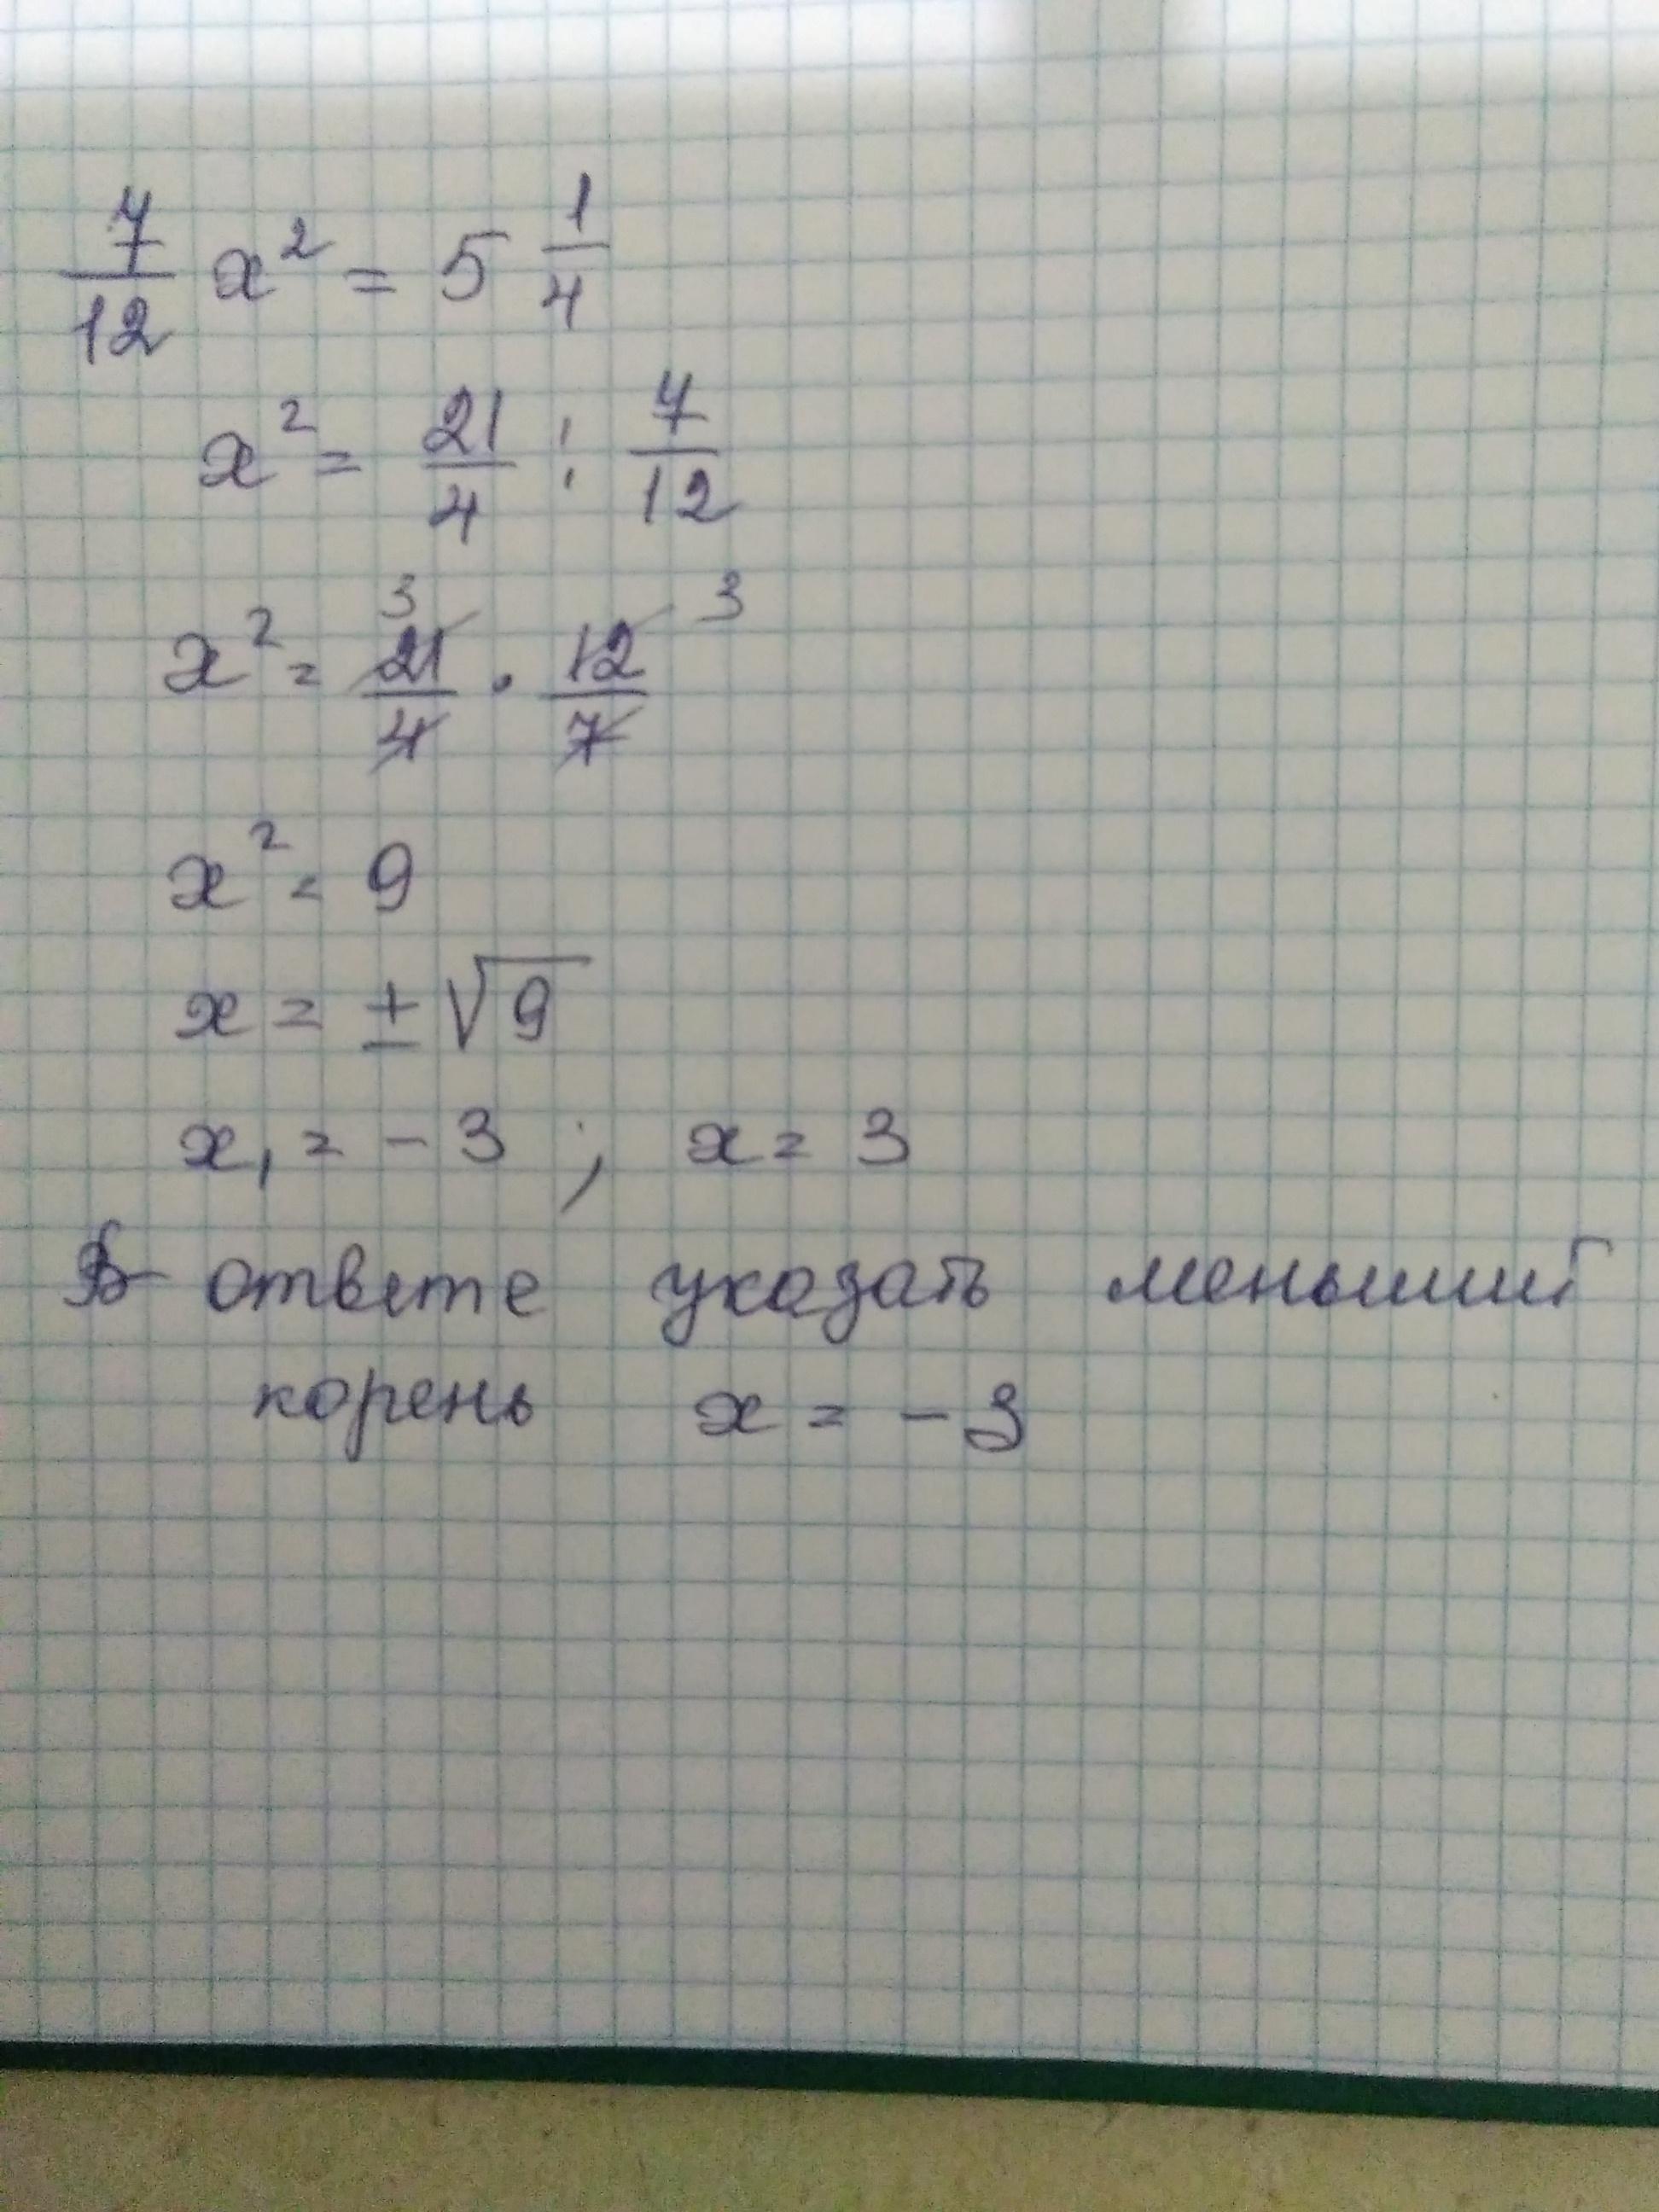 7/12 x² = 5 1/4
x² = 21/4 : 7/12
x² = 21/4 · 12/7 3 3
x² = 9
x = ± √9
x₁ = - 3 ; x = 3
В ответе указать меньший
корень x = - 3